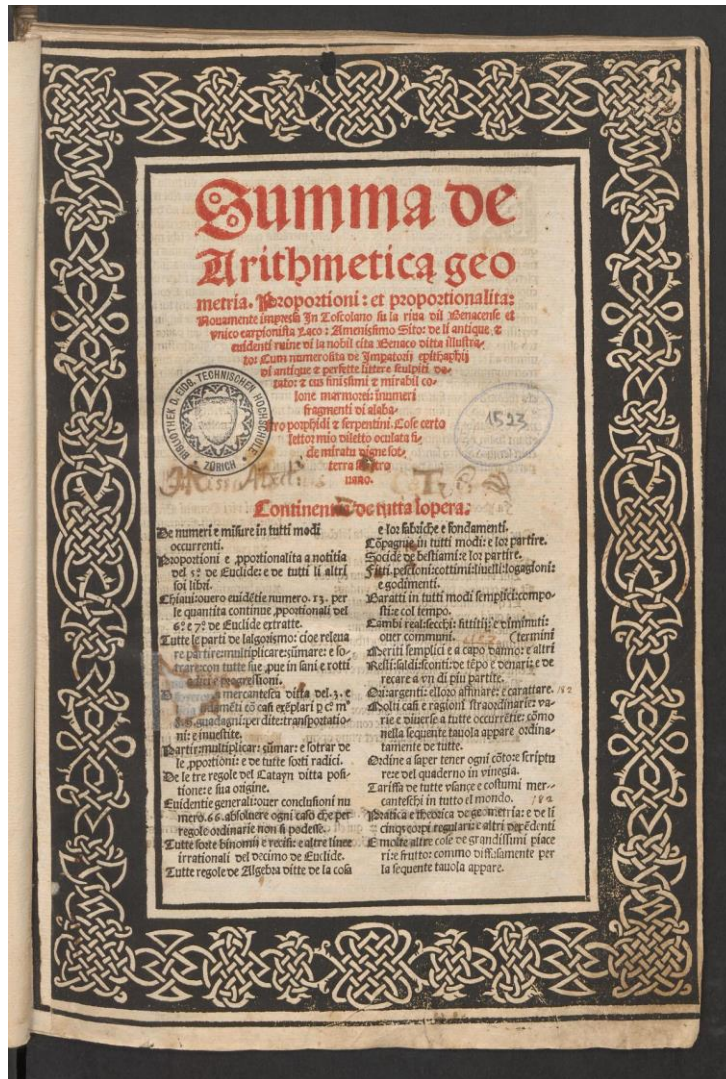 Summa de
Arithmetica geo
metria. Proportioni: et proportionalita:
Nouamente impressa In Toscolano su la riua dil Benacense et
vnico carpionista Laco: Amenissimo Sito: de li antique &
euidenti ruine di la nobil cita Benaco ditta illustra-
to: Cum numerosita de Imperatorij epithaphij
di antique & perfette littere sculpiti do-
tato: & cus finissimi & mirabil co-
lone marmorei: inumeri
fragmenti di alaba-
tro porphidi & serpentini. Cose certo
lettor mio diletto oculata fi-
de miratu digne sot-
terra
uano.
BIBLIOTHEK D. EIDG. TECHNISCHEN HOCHSCHULE
ZÜRICH
1523
Continentia de tutta lopera.
De numeri e misure in tutti modi
occurrenti.
Proportioni e ꝓportionalita a notitia
del 5º de Euclide: e de tutti li altri
soi libri.
Chiaui: ouero euidẽtie numero. 13. per
le quantita continue ꝓportionali del
6º e 7º de Euclide extratte.
Tutte le parti de lalgorismo: cioe releua
re partire: multiplicare: sũmare: e so-
trare: con tutte sue ꝓue in sani e rotti
e progressioni.
mercantesca ditta del .3. e
cõ casi exẽplari
guadagni: perdite: transportatio-
ni: e inuestite.
Partir: multiplicar: sũmar: e sotrar de
le ꝓportioni: e de tutte sorti radici.
De le tre regole del Catayn ditta posi-
tione: e sua origine.
Euidentie generali: ouer conclusioni nu
mero. 66. absoluere ogni caso che per
regole ordinarie non si podesse.
Tutte sorte binomii e recisi: e altre linee
irrationali del decimo de Euclide.
Tutte regole de Algebra ditte de la cosa
e lor fabriche e fondamenti.
Cõpagnie in tutti modi: e lor partire.
Socide de bestiami: e lor partire.
Fitti: pescioni: cottimi: liuelli: logagioni:
e godimenti.
Baratti in tutti modi semplici: compo-
sti: e col tempo.
Cambi reali: secchi: fittitij: e diminuti:
ouer communi. (termini
Meriti semplici e a capo danno: e altri
Resti: saldi: sconti: de tẽpo e denari: e de
recare a vn di piu partite.
Ori: argenti: e lloro affinare: e carattare. 182
Molti casi e ragioni straordinarie: va-
rie e diuerse a tutte occurrẽtie: cõmo
nella sequente tauola appare ordina-
tamente de tutte.
Ordine a saper tener ogni cõto: e scriptu
re: e del quaderno in vinegia.
Tariffa de tutte vsançe e costumi mer-
canteschi in tutto el mondo. 182
Pratica e theorica de geometria: e de li
cinque corpi regulari: e altri depẽdenti
E molte altre cose de grandissimi piace
ri: e frutto: commo diffusamente per
la sequente tauola appare.